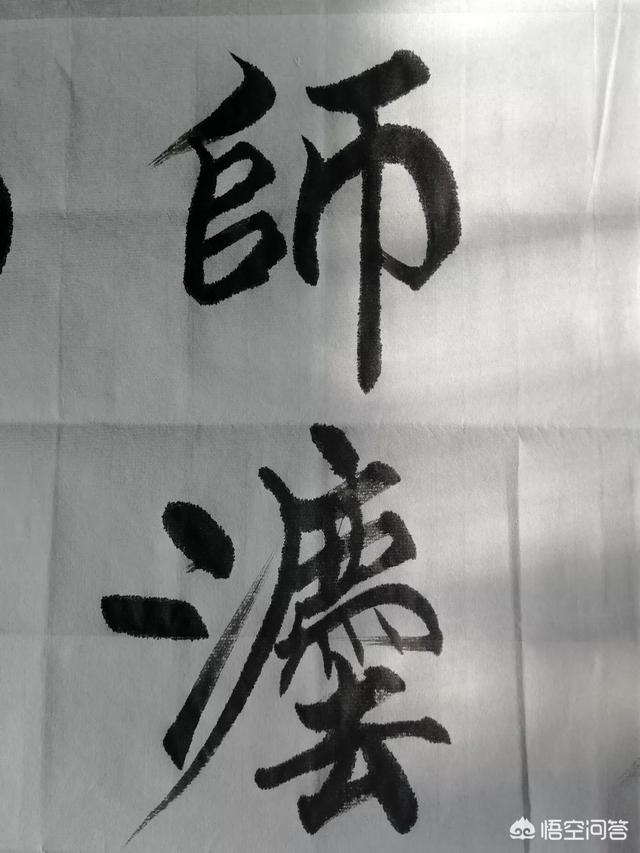 師灋
悟空问答